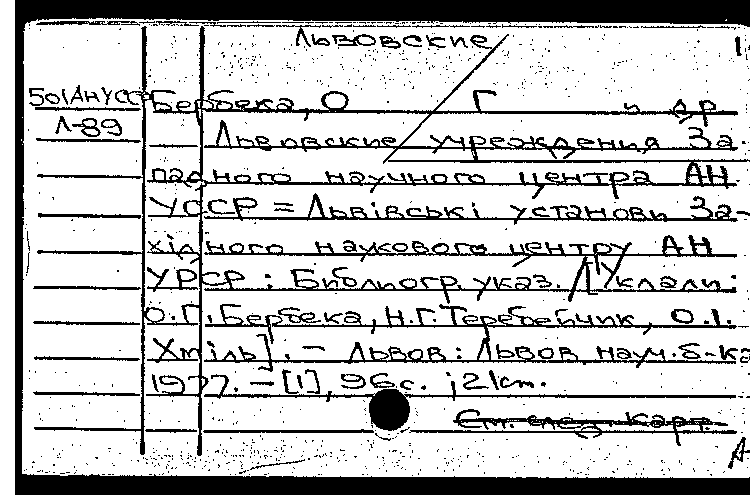 Львовские 1
50(АНУССР Бербека, О Г и др
Л-89 Львовские учреждения За-
падного научного центра АН
УССР = Львівські установи За-
хідного наукового центру АН
УРСР : Библиогр. указ. / [Уклали:
О.Г. Бербека, Н.Г. Теребейчик, О.І.
Хміль]. – Львов : Львов. науч. б-ка
1977. – [1], 96 с. ; 21 cm.
См. след. карт.